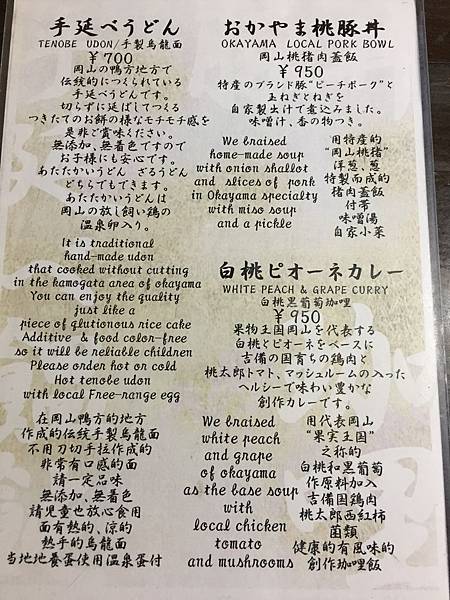 手延べうどん
TENOBE UDON/手製烏龍面
￥700
岡山の鴨方地方で
伝統的につくられている
手延べうどんです。
切らずに延ばしてつくる
つきたてのお餅の様なモチモチ感を
是非ご賞味ください。
無添加、無着色ですので
お子様にも安心です。
あたたかいうどん ざるうどん
どちらでもできます。
あたたかいうどんは
岡山の放し飼い鶏の
温泉卵入り。
It is traditional
hand-made udon
that cooked without cutting
in the kamogata area of okayama
You can enjoy the quality
just like a
piece of glutionous rice cake
Additive & food color-free
so it will be reliable children
Please order hot or cold
Hot tenobe udon
with local Free-range egg
在岡山鴨方的地方
作成的伝統手製烏龍面
不用刀切手拉作成的
非常有口感的面
請一定品味
無添加、無着色
請児童也放心食用
面有熱的、涼的
熱乎的烏龍面
当地地養蛋使用温泉蛋付
おかやま桃豚丼
OKAYAMA LOCAL PORK BOWL
岡山桃猪肉蓋飯
￥950
特産のブランド豚“ピーチポーク”と
玉ねぎとねぎを
自家製出汁で煮込みました。
味噌汁、香の物つき。
We braised
home-made soup
with onion shallot
and slices of pork
in Okayama specialty
with miso soup
and a pickle
用特産的
“岡山桃猪”
洋葱、葱
特製而成的
猪肉蓋飯
付帯
味噌湯
自家小菜
白桃ピオーネカレー
WHITE PEACH & GRAPE CURRY
白桃黒葡萄珈哩
￥950
果物王国岡山を代表する
白桃とピオーネをベースに
吉備の国育ちの鶏肉と
桃太郎トマト、マッシュルームの入った
ヘルシーで味わい豊かな
創作カレーです。
We braised
white peach
and grape
of okayama
as the base soup
with
local chicken
tomato
and mushrooms
用代表岡山
“果実王国”
之称的
白桃和黒葡萄
作原料加入
吉備国鶏肉
桃太郎西紅柿
菌類
健康的有風味的
創作珈哩飯